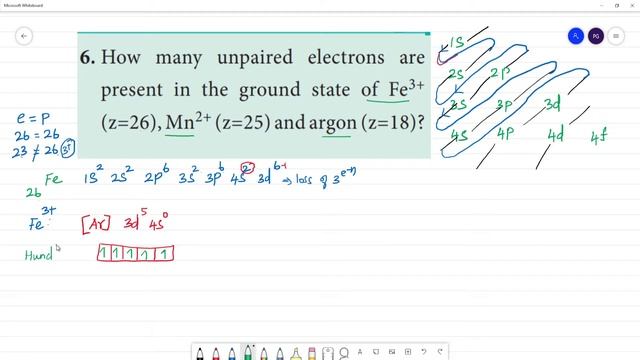 Microsoft Whiteboard
PG
6. How many unpaired electrons are
present in the ground state of Fe³⁺
(z=26), Mn²⁺ (z=25) and argon (z=18)?
1S
2S 2p
3S 3p 3d
4S 4p 4d 4f
e = p
26 = 26
23 ≠ 26 3+
26 Fe 1S² 2S² 2p⁶ 3S² 3p⁶ 4S² 3d⁶⁻¹ → loss of 3e⁻ⁿ
Fe³⁺: [Ar] 3d⁵ 4S⁰
Hund 1 1 1 1 1